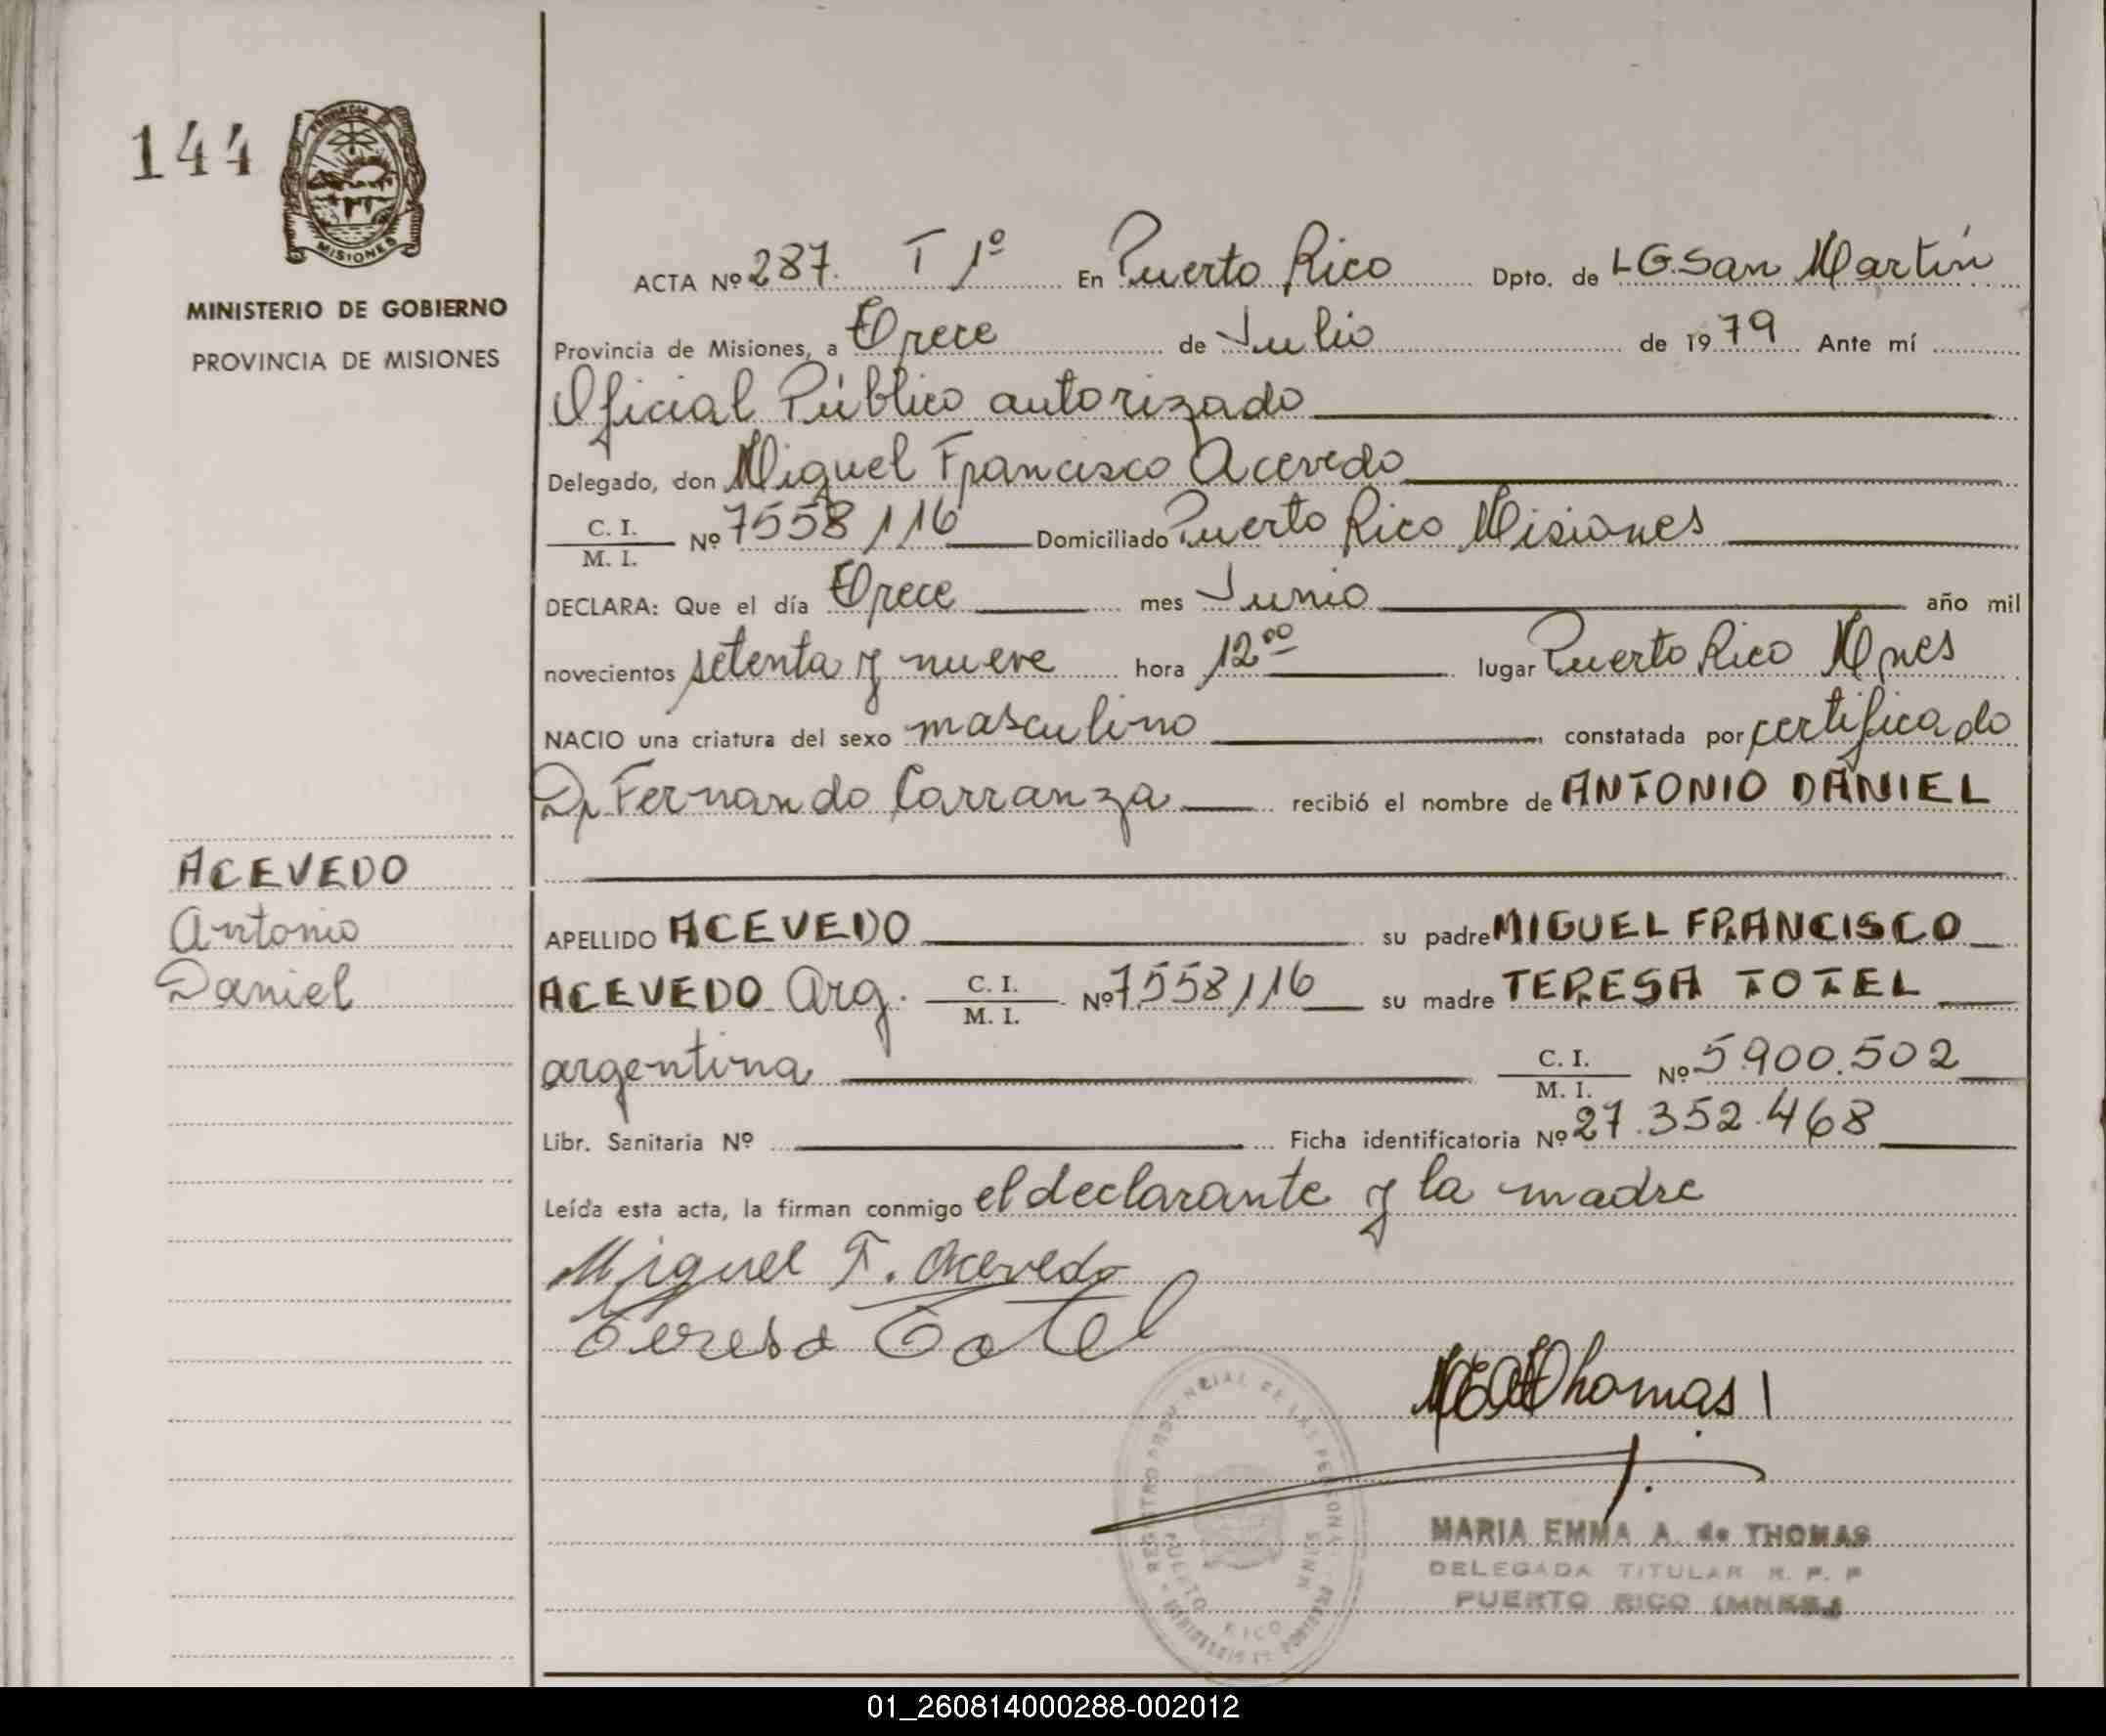 144
PROVINCIA DE
MISIONES
MINISTERIO DE GOBIERNO
PROVINCIA DE MISIONES
ACEVEDO
Antonio
Daniel
ACTA Nº 287. T 1º En Puerto Rico Dpto. de LG.San Martín
Provincia de Misiones, a Trece de Julio de 1979 Ante mí
Oficial Público autorizado
Delegado, don Miguel Francisco Acevedo
C. I.
M. I. Nº 7558116 Domiciliado Puerto Rico Misiones
DECLARA: Que el día Trece mes Junio año mil
novecientos setenta y nueve hora 12⁰⁰ lugar Puerto Rico Mnes
NACIO una criatura del sexo masculino constatada por certificado
Dr Fernando Carranza recibió el nombre de ANTONIO DANIEL
APELLIDO ACEVEDO su padre MIGUEL FRANCISCO
ACEVEDO Arg. C. I.
M. I. Nº 7558116 su madre TERESA TOTEL
argentina C. I.
M. I. Nº 5.900.502
Libr. Sanitaria Nº Ficha identificatoria Nº 27.352.468
Leída esta acta, la firman conmigo el declarante y la madre
Miguel F. Acevedo
Teresa Totel
Thomas
REGISTRO PROVINCIAL DE LAS PERSONAS
PUERTO RICO MNES
MARIA EMMA A. de THOMAS
DELEGADA TITULAR R. P. P
PUERTO RICO (MNES.)
01_260814000288-002012